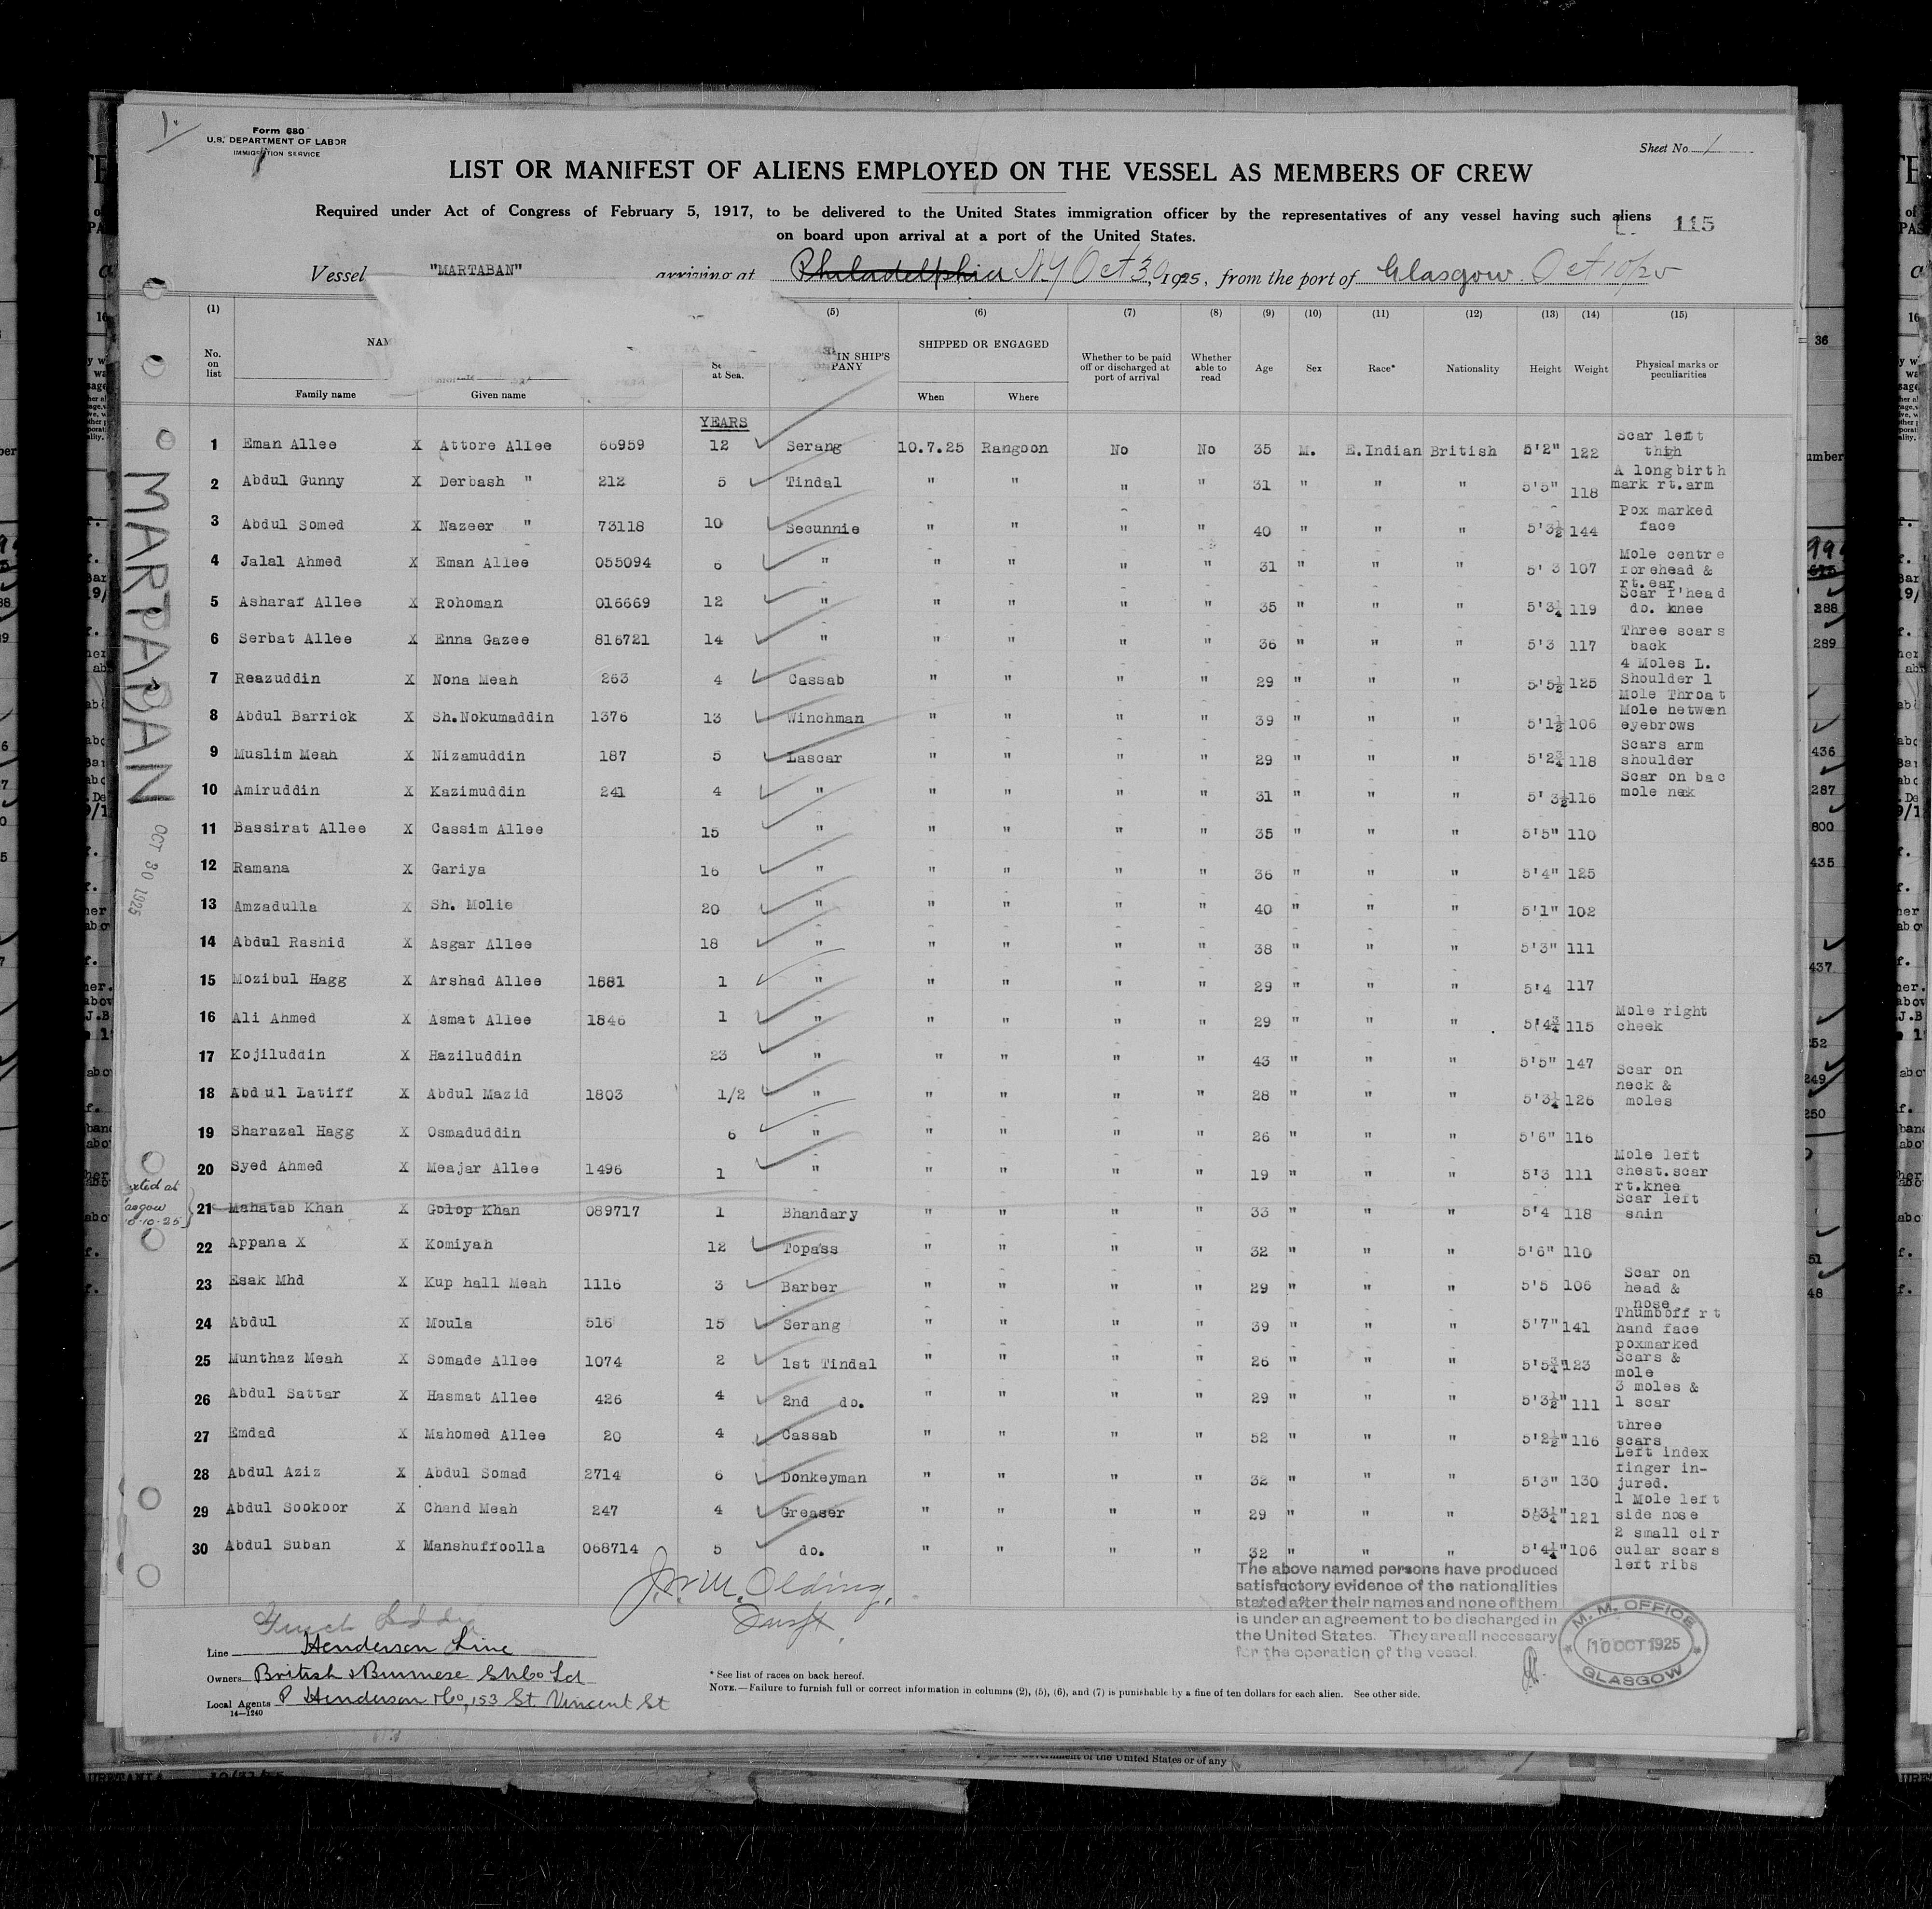 Form 680
U.S. DEPARTMENT OF LABOR
IMMIGRATION SERVICE
Sheet No. 1
LIST OR MANIFEST OF ALIENS EMPLOYED ON THE VESSEL AS MEMBERS OF CREW
Required under Act of Congress of February 5, 1917, to be delivered to the United States immigration officer by the representatives of any vessel having such aliens
115
on board upon arrival at a port of the United States.
Vessel "MARTABAN" arriving at Philadelphia NY Oct 30, 1925, from the port of Glasgow. Oct 10/25
(1) (5) (6) (7) (8) (9) (10) (11) (12) (13) (14) (15)
No. on list Family name Given name at Sea. IN SHIP'S SHIPPED OR ENGAGED When Where Whether to be paid off or discharged at port of arrival Whether able to read Age Sex Race* Nationality Height Weight Physical marks or peculiarities
YEARS
1 Eman Allee X Attore Allee 66959 12 Serang 10.7.25 Rangoon No No 35 M. E.Indian British 5'2" 122 Scar left thigh
2 Abdul Gunny X Derbash " 212 5 Tindal " " " " 31 " " " 5'5" 118 A long birth mark rt.arm
3 Abdul Somed X Nazeer " 73118 10 Secunnie " " " " 40 " " " 5'3½ 144 Pox marked face
4 Jalal Ahmed X Eman Allee 055094 6 " " " " " 31 " " " 5'3 107 Mole centre forehead & rt.ear
5 Asharaf Allee X Rohoman 016669 12 " " " " " 35 " " " 5'3¼ 119 Scar f'head do. knee
6 Serbat Allee X Enna Gazee 816721 14 " " " " " 36 " " " 5'3 117 Three scars back
7 Reazuddin X Nona Meah 263 4 Cassab " " " " 29 " " " 5'5½ 125 4 Moles L. Shoulder 1 Mole Throat
8 Abdul Barrick X Sh.Nokumaddin 1376 13 Winchman " " " " 39 " " " 5'1½ 106 Mole hetween eyebrows
9 Muslim Meah X Nizamuddin 187 5 Lascar " " " " 29 " " " 5'2¾ 118 Scars arm shoulder
10 Amiruddin X Kazimuddin 241 4 " " " " " 31 " " " 5'3½ 116 Scar on bac mole nek
11 Bassirat Allee X Cassim Allee 15 " " " " " 35 " " " 5'5" 110
12 Ramana X Gariya 16 " " " " " 36 " " " 5'4" 125
13 Amzadulla X Sh. Molie 20 " " " " " 40 " " " 5'1" 102
14 Abdul Rashid X Asgar Allee 18 " " " " " 38 " " " 5'3" 111
15 Mozibul Hagg X Arshad Allee 1881 1 " " " " " 29 " " " 5'4 117
16 Ali Ahmed X Asmat Allee 1846 1 " " " " " 29 " " " 5'4¾ 115 Mole right cheek
17 Kojiluddin X Haziluddin 23 " " " " " 43 " " " 5'5" 147
18 Abdul Latiff X Abdul Mazid 1803 1/2 " " " " " 28 " " " 5'3¼ 126 Scar on neck & moles
19 Sharazal Hagg X Osmaduddin 6 " " " " " 26 " " " 5'6" 116
20 Syed Ahmed X Meajar Allee 1496 1 " " " " " 19 " " " 5'3 111 Mole left chest.scar rt.knee
21 Mahatab Khan X Golop Khan 089717 1 Bhandary " " " " 33 " " " 5'4 118 Scar left shin
22 Appana X X Komiyah 12 Topass " " " " 32 " " " 5'6" 110
23 Esak Mhd X Kup hall Meah 1116 3 Barber " " " " 29 " " " 5'5 106 Scar on head & nose
24 Abdul X Moula 516 15 Serang " " " " 39 " " " 5'7" 141 Thumboff rt hand face poxmarked
25 Munthaz Meah X Somade Allee 1074 2 1st Tindal " " " " 26 " " " 5'5¾" 123 Scars & mole
26 Abdul Sattar X Hasmat Allee 426 4 2nd do. " " " " 29 " " " 5'3½" 111 3 moles & 1 scar
27 Emdad X Mahomed Allee 20 4 Cassab " " " " 52 " " " 5'2½" 116 three scars
28 Abdul Aziz X Abdul Somad 2714 6 Donkeyman " " " " 32 " " " 5'3" 130 Left index finger injured.
29 Abdul Sookoor X Chand Meah 247 4 Greaser " " " " 29 " " " 5'3¼" 121 1 Mole left side nose
30 Abdul Suban X Manshuffoolla 068714 5 do. " " " " 32 " " " 5'4¼" 106 2 small cir cular scars left ribs
MARTABAN
OCT 30 1925
The above named persons have produced
satisfactory evidence of the nationalities
stated after their names and none of them
is under an agreement to be discharged in
the United States. They are all necessary
for the operation of the vessel.
M. M. OFFICE
10 OCT 1925
GLASGOW
Line Henderson Line
Owners British & Burmese SNCo Ld
Local Agents P Henderson & Co, 153 St Vincent St
14—1240
* See list of races on back hereof.
NOTE.—Failure to furnish full or correct information in columns (2), (5), (6), and (7) is punishable by a fine of ten dollars for each alien. See other side.